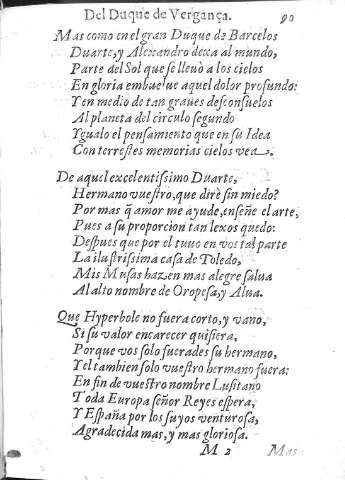 Del Duque de Vergança. 90
Mas como en el gran Duque de Barcelos
Duarte, y Alexandro dexa al mundo,
Parte del Sol que se lleuò a los cielos
En gloria embuelue aquel dolor profundo:
Y en medio de tan graues desconsuelos
Al planeta del circulo segundo
Yguala el pensamiento que en su Idea
Con terrestes memorias cielos vea.
De aquel excelentissimo Duarte,
Hermano vuestro, que dirè sin miedo?
Por mas q̃ amor me ayude, enseñe el arte,
Pues a su proporcion tan lexos quedo:
Despues que por el tuuo en vos tal parte
La ilustrissima casa de Toledo,
Mis Musas hazen mas alegre salua
Al alto nombre de Oropesa, y Alua.
Que Hyperbole no fuera corto, y vano,
Si su valor encarecer quisiera,
Porque vos solo fuerades su hermano,
Y el tambien solo vuestro hermano fuera:
En fin de vuestro nombre Lusitano
Toda Europa señor Reyes espera,
Y España por los suyos venturosa,
Agradecida mas, y mas gloriosa.
M 2 Mas